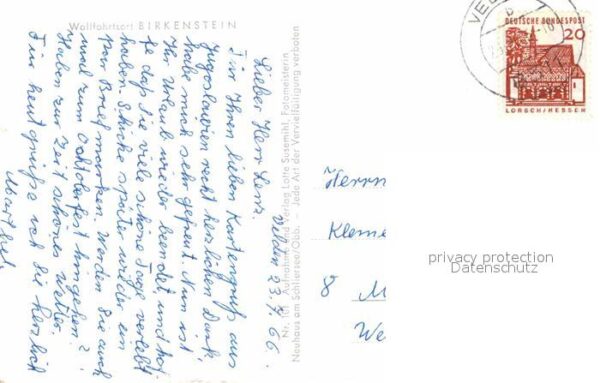 Wallfahrtsort BIRKENSTEIN
Velden 23.9.66.
Lieber Herr Lenz,
Für Ihren lieben Kartengruß aus
Jugoslawien recht herzlichen Dank,
habe mich sehr gefreut. Nun ist
Ihr Urlaub wieder beendet, und hof-
fe daß Sie viele schöne Tage verlebt
haben. Schicke später wieder ein
paar Briefmarken. Werden Sie auch
mal zum Oktoberfest hingehen?
Haben zur Zeit schönes Wetter.
Für heut grüße ich Sie herzlich
Nr. 101 Aufnahme und Verlag Lotte Susemihl, Fotomeisterin
Neuhaus am Schliersee/Obb. – Jede Art der Vervielfältigung verboten
VEL
DEUTSCHE BUNDESPOST
20
LORSCH/HESSEN
Herrn
Kleme
8 M
We
privacy protection
Datenschutz